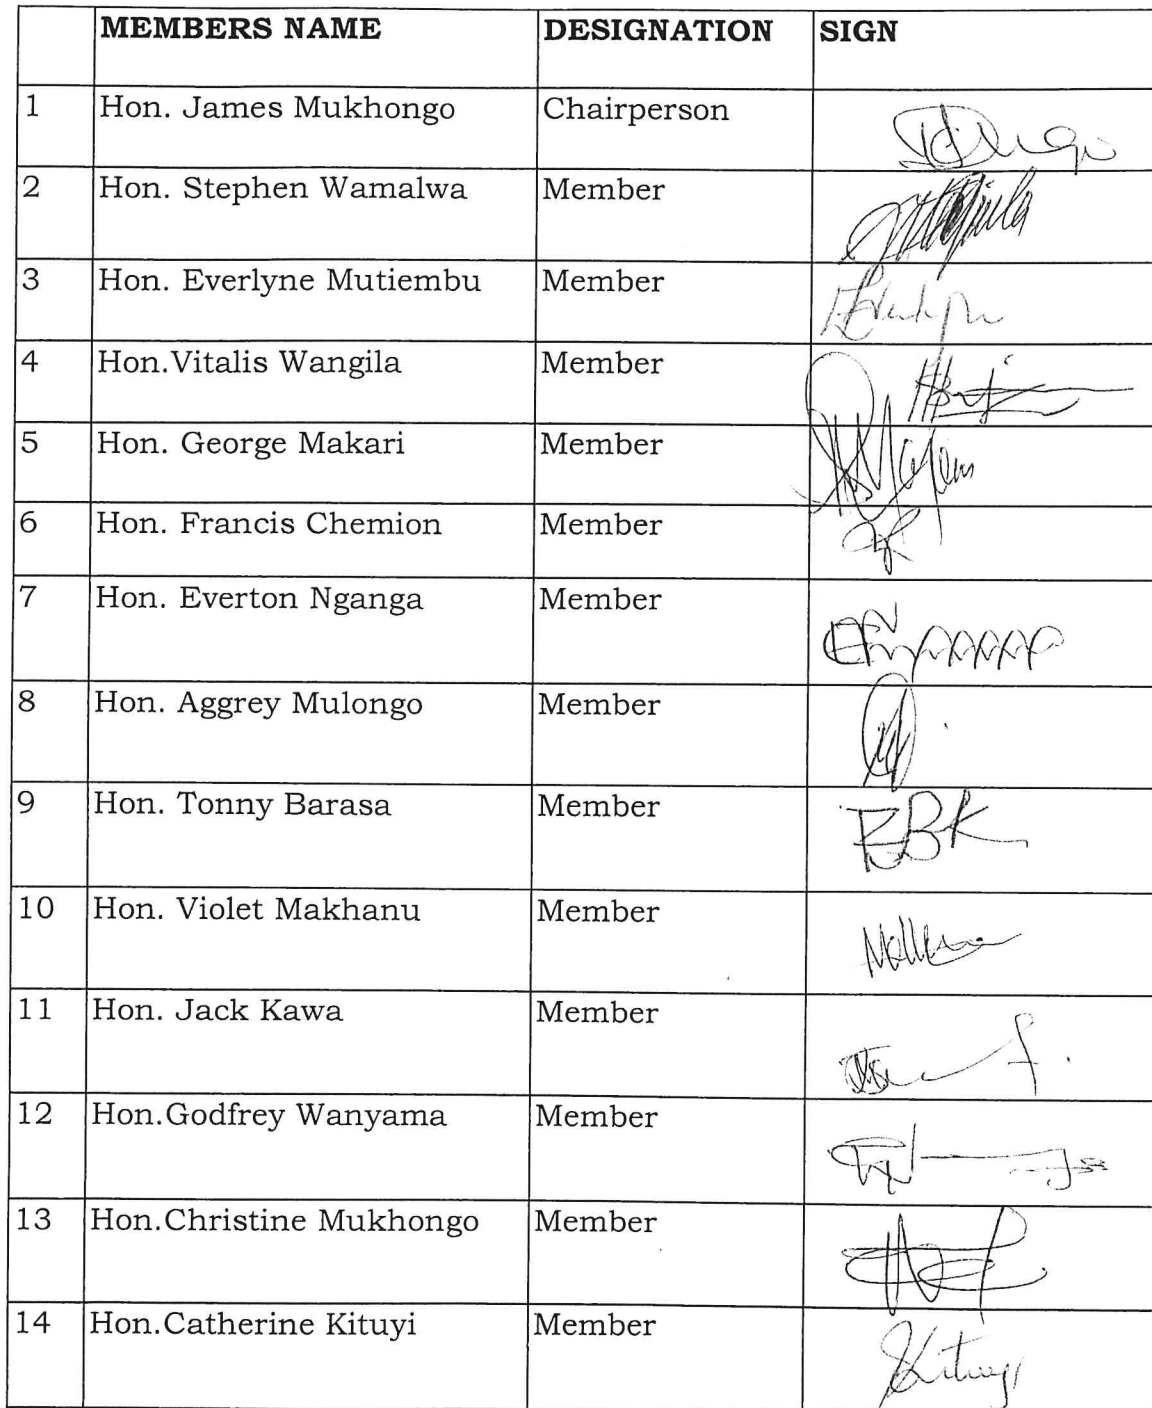 MEMBERS NAME DESIGNATION SIGN
1 Hon. James Mukhongo Chairperson
2 Hon. Stephen Wamalwa Member
3 Hon. Everlyne Mutiembu Member
4 Hon.Vitalis Wangila Member
5 Hon. George Makari Member
6 Hon. Francis Chemion Member
7 Hon. Everton Nganga Member
8 Hon. Aggrey Mulongo Member
9 Hon. Tonny Barasa Member
10 Hon. Violet Makhanu Member
11 Hon. Jack Kawa Member
12 Hon.Godfrey Wanyama Member
13 Hon.Christine Mukhongo Member
14 Hon.Catherine Kituyi Member